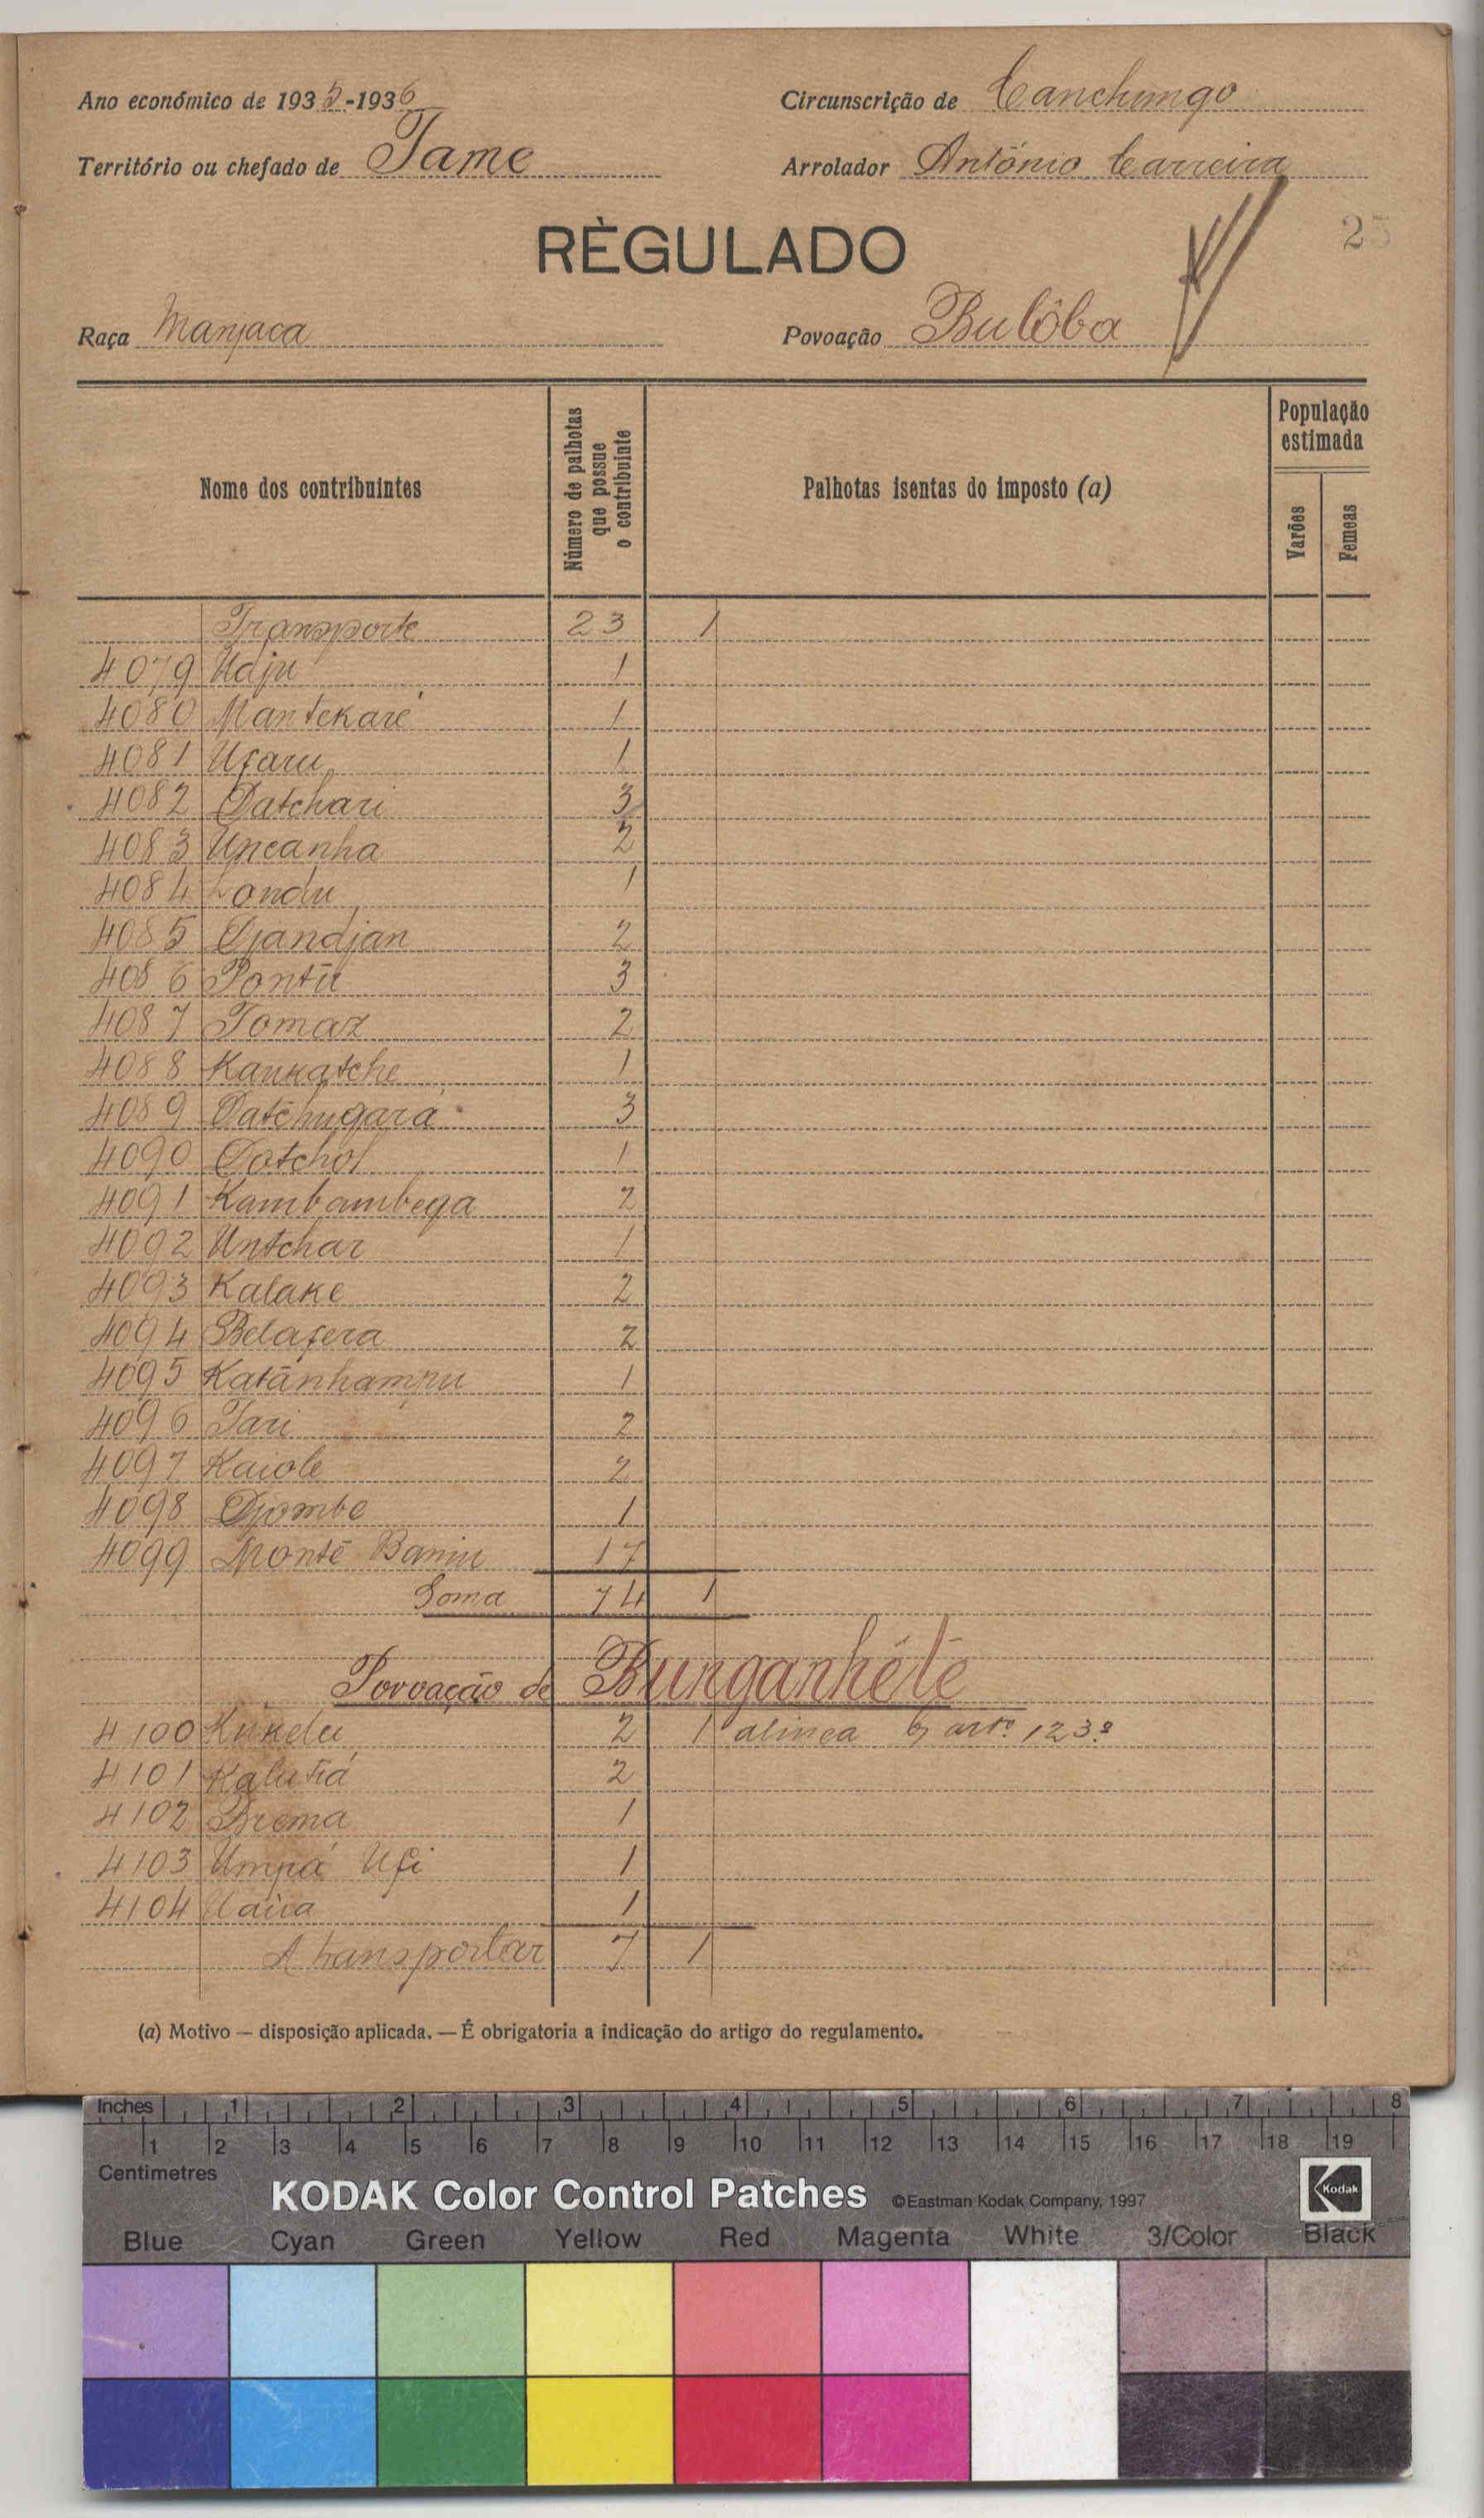 Ano económico de 1935-1936
Circunscrição de Canchungo
Território ou chefado de Tame
Arrolador António Carreira
RÈGULADO
25
Raça Manjaca
Povoação Bulôba
Nome dos contribuintes
Número de palhotas que possue o contribuinte
Palhotas isentas do imposto (a)
População estimada
Varões
Femeas
Transporte 23 1
4079 Uaju 1
4080 Mantekaré 1
4081 Ufaru 1
4082 Datchari 3
4083 Uncanha 2
4084 Londu 1
4085 Djandjan 2
4086 Pontu 3
4087 Tomaz 2
4088 Kankatche 1
4089 Datchugará 3
4090 Datchol 1
4091 Kambambega 2
4092 Untchar 1
4093 Kalake 2
4094 Belafera 2
4095 Katanhampu 1
4096 Tari 2
4097 Kaiole 2
4098 Djombe 1
4099 Monte Baniu 17
Soma 74 1
Povoação de Bunganhête
4100 Kukelu 2 1 alinea b) artº 123º
4101 Kalutiá 2
4102 Brema 1
4103 Umpá Ufi 1
4104 Uaica 1
A transportar 7 1
(a) Motivo — disposição aplicada. — É obrigatoria a indicação do artigo do regulamento.
Inches 1 2 3 4 5 6 7 8
1 2 3 4 5 6 7 8 9 10 11 12 13 14 15 16 17 18 19
Centimetres
KODAK Color Control Patches ©Eastman Kodak Company, 1997 Kodak
Blue Cyan Green Yellow Red Magenta White 3/Color Black